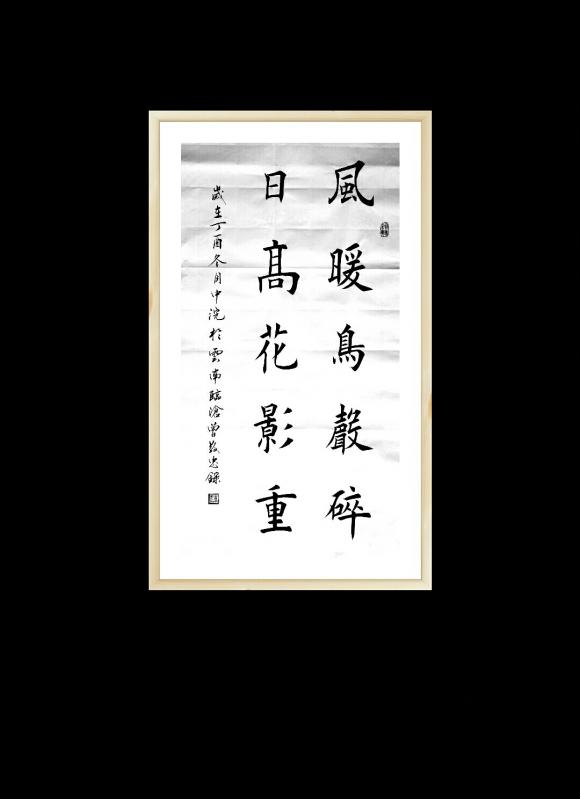 風暖鳥聲碎
日髙花影重
歲在丁酉冬月中浣於雲南臨滄曾忠錄